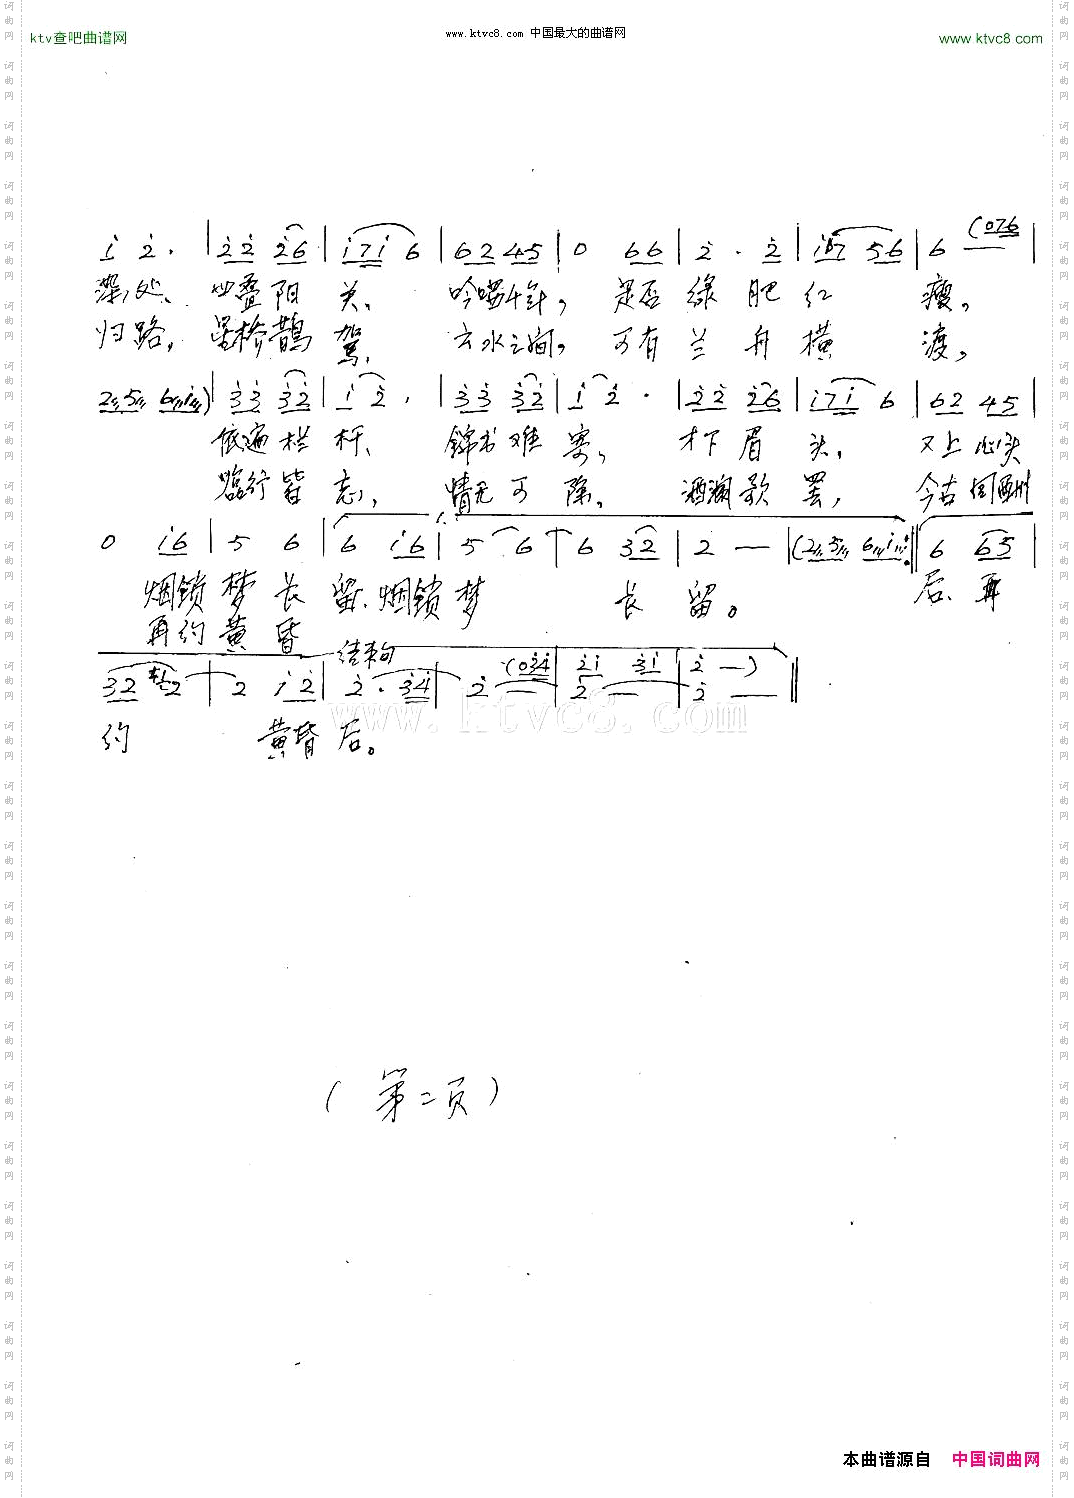 ktv查吧曲谱网
www.ktvc8.com 中国最大的曲谱网
www ktvc8 com
i 2̇ · | 2̇2̇ 2̇6 | i̇7i̇ 6 | 62 45 | 0 66 | 2̇ · 2̇ | i̇7 56 | 6 (076 |
深处、四叠阳关、吟喁十年，是否绿肥红瘦，
归路，星桥鹊驾，云水之间，可有兰舟横渡，
2 5 6 i̇) | 3̇3̇ 3̇2̇ | i̇ 2̇ · | 3̇3̇ 3̇2̇ | i̇ 2̇ · | 2̇2̇ 2̇6 | i̇7i̇ 6 | 62 45
依遍栏杆、锦书难寄，才下眉头，又上心头
临行皆忘，情无可除。酒阑歌罢，今古
0 i̇6 | 5 6 | 6 i̇6 | 5 6 | 6 32 | 2 — | (2 5 6 i̇ :‖ 6 65 |
烟锁梦长留、烟锁梦长留。后、再
再约黄昏
结束句
32 2 | 2 i̇2̇ | 2̇ · 3̇4̇ | 2̇ — | 2̇ — | 2̇ — ‖
(03̇4̇ | 2̇i̇ 3̇i̇ | 2̇ —)
约黄昏后。
www.ktvc8.com
（第二页）
本曲谱源自 中国词曲网